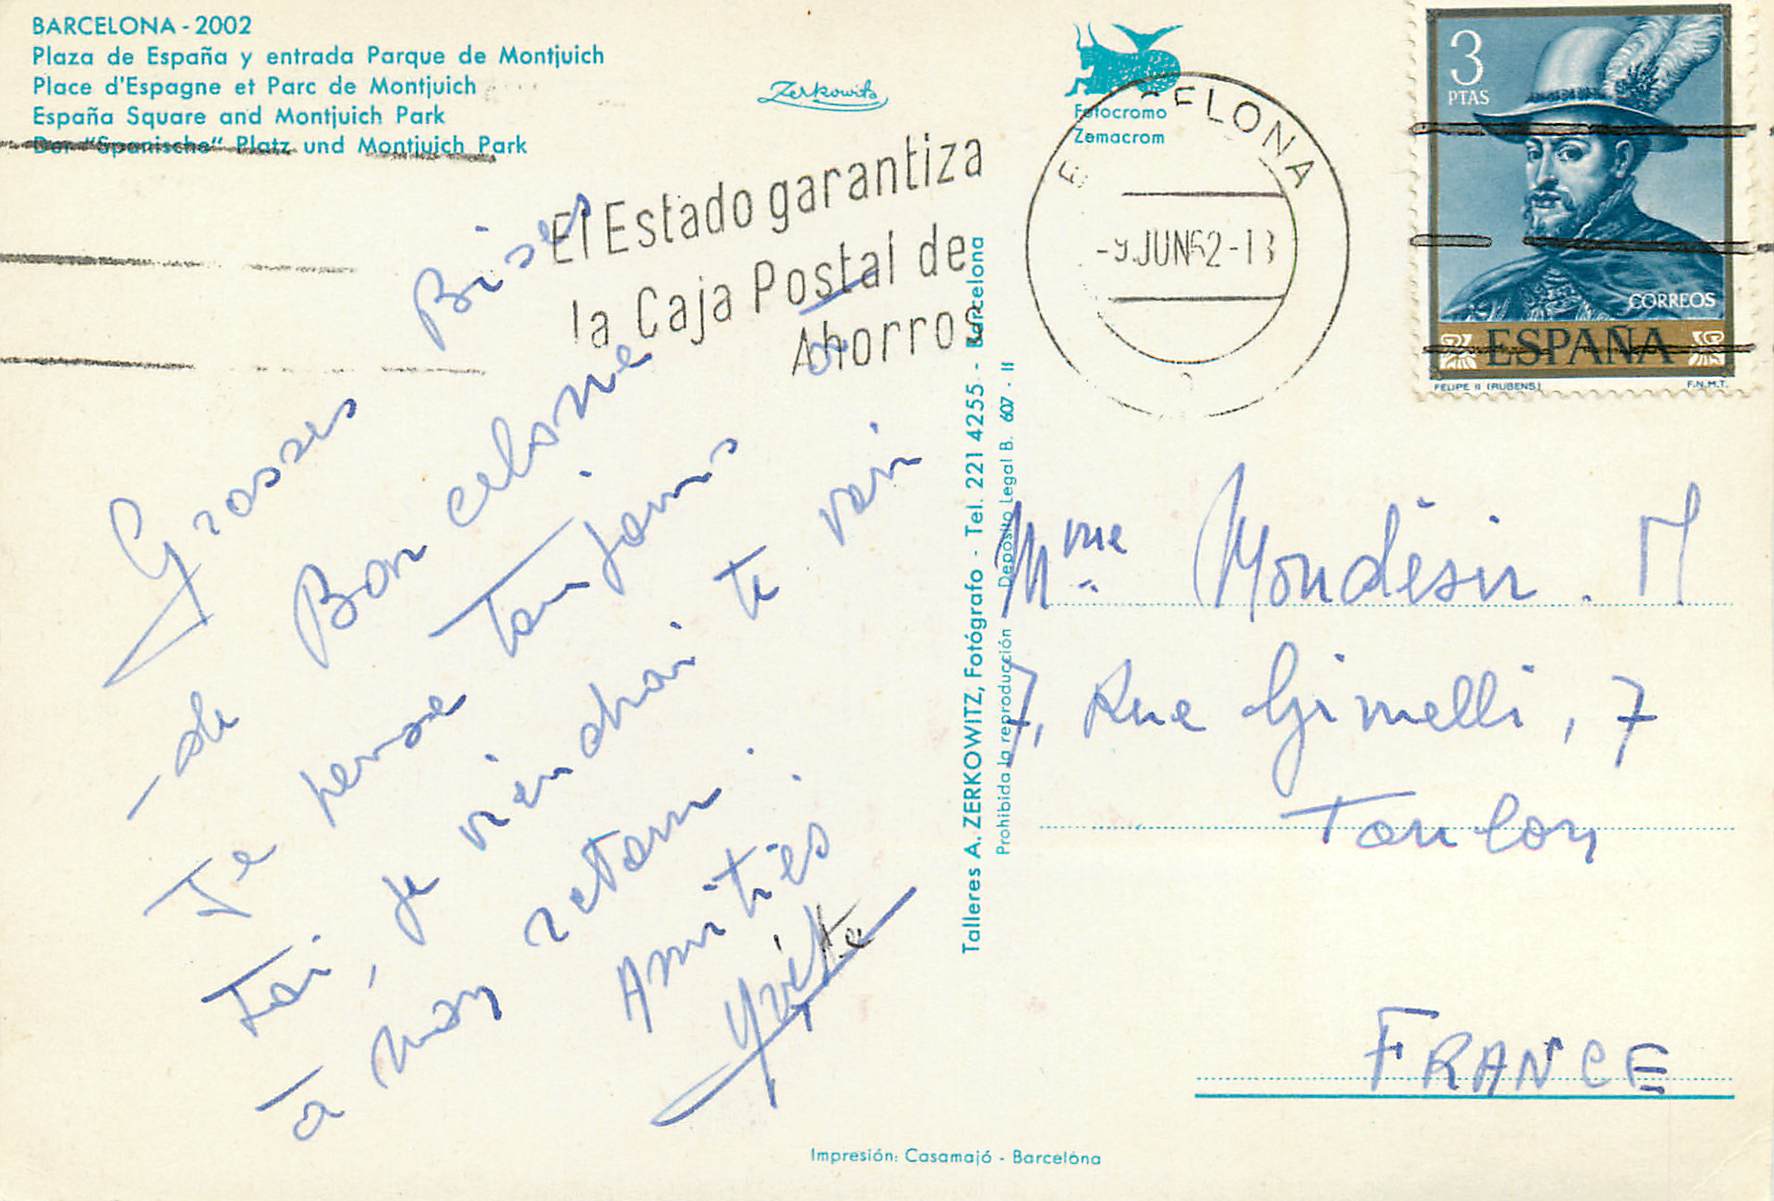 BARCELONA - 2002
Plaza de España y entrada Parque de Montjuich
Place d'Espagne et Parc de Montjuich
España Square and Montjuich Park
Der "Spanische" Platz und Montjuich Park
Zerkowitz
Fotocromo
Zemacrom
El Estado garantiza
la Caja Postal de
Ahorros
ELONA
-9 JUN 62-13
3
PTAS
CORREOS
ESPAÑA
FELIPE II (RUBENS)
F.N.M.T.
Grosses Bises
de Barcelone
Je pense toujours à
toi, je viendrai te voir
à mon retour.
Amitiés
Yvette
Talleres A. ZERKOWITZ, Fotógrafo - Tel. 221 4255 - Barcelona
Prohibida la reproducción Depósito Legal B. 607 - II
Mme Mondésir. M
7, Rue Gimelli, 7
Toulon
FRANCE
Impresión: Casamajó - Barcelona